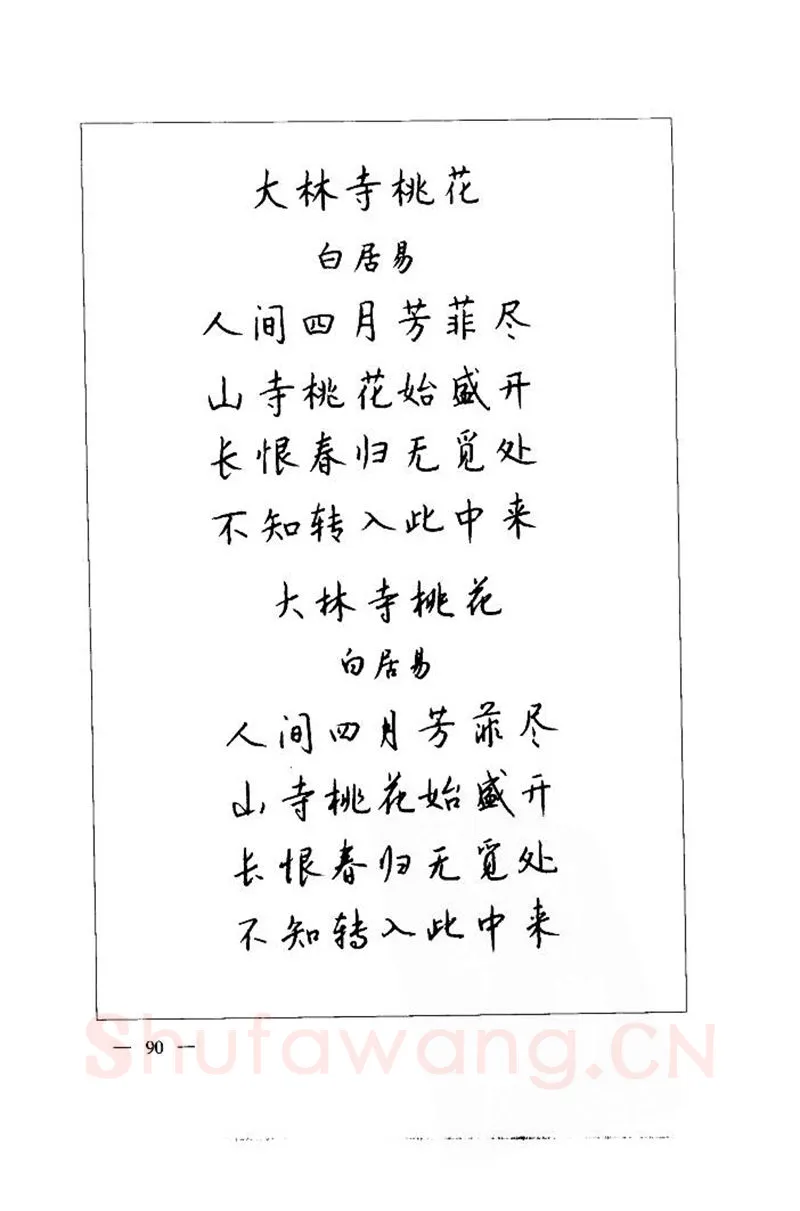 大林寺桃花
白居易
人间四月芳菲尽
山寺桃花始盛开
长恨春归无觅处
不知转入此中来
大林寺桃花
白居易
人间四月芳菲尽
山寺桃花始盛开
长恨春归无觅处
不知转入此中来
— 90 —
Shufawang.CN